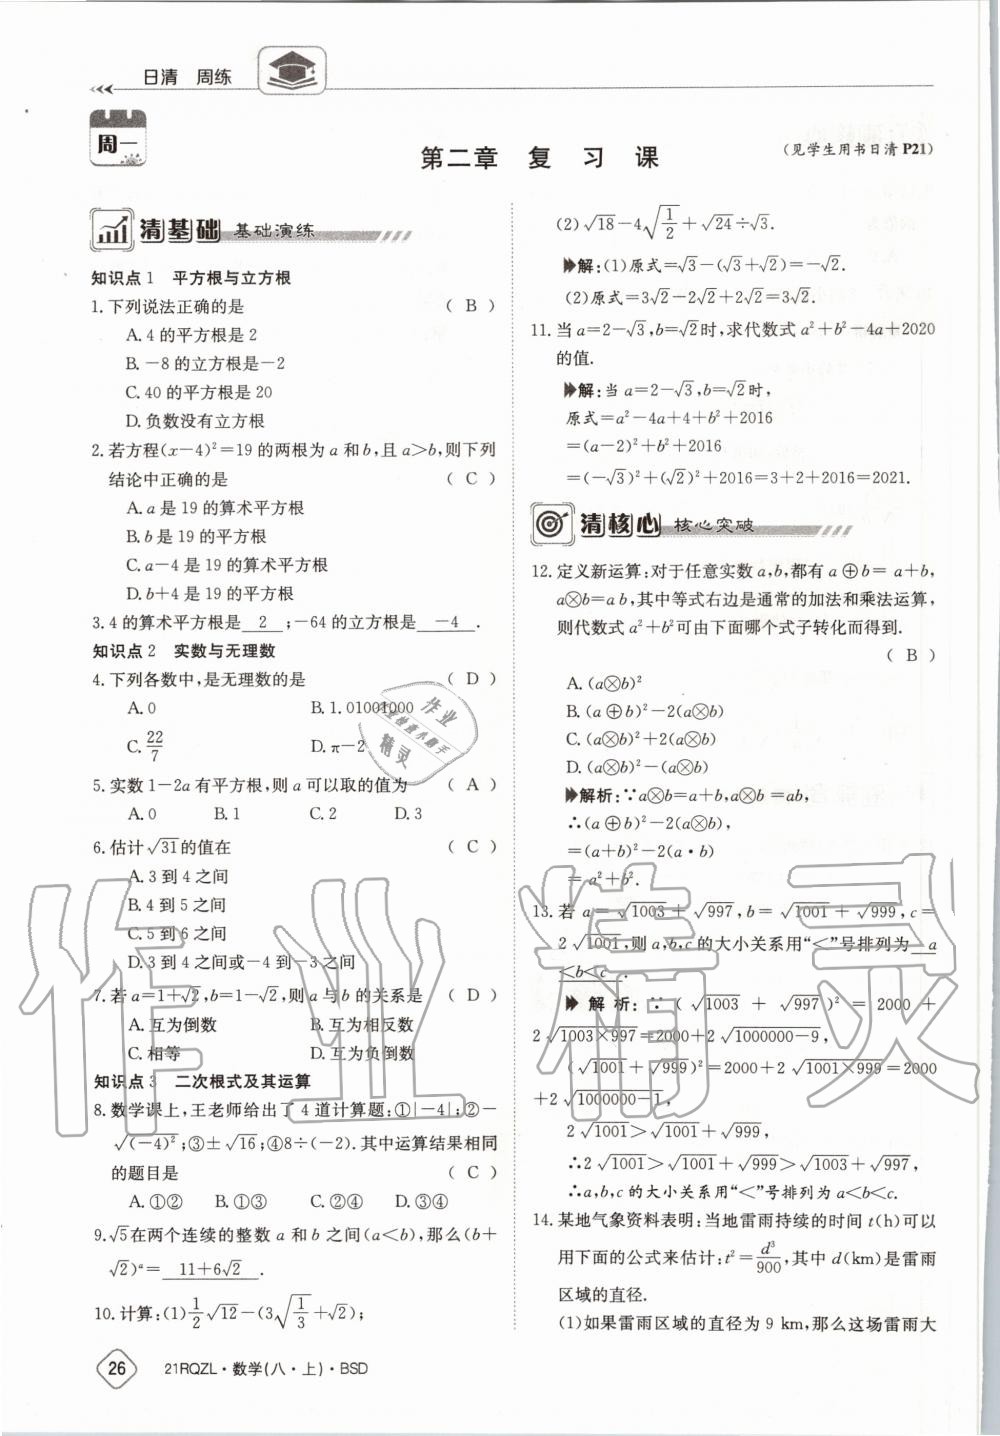 日清 周练
周一
第二章 复 习 课
(见学生用书日清 P21)
清基础 基础演练
知识点1 平方根与立方根
1.下列说法正确的是 ( B )
A.4的平方根是2
B.-8的立方根是-2
C.40的平方根是20
D.负数没有立方根
2.若方程(x-4)²=19的两根为a和b,且a>b,则下列
结论中正确的是 ( C )
A.a是19的算术平方根
B.b是19的平方根
C.a-4是19的算术平方根
D.b+4是19的平方根
3.4的算术平方根是 2 ;-64的立方根是 -4 .
知识点2 实数与无理数
4.下列各数中,是无理数的是 ( D )
A.0 B.1.01001000
C.22/7 D.π-2
5.实数1-2a有平方根,则a可以取的值为 ( A )
A.0 B.1 C.2 D.3
6.估计√31的值在 ( C )
A.3到4之间
B.4到5之间
C.5到6之间
D.3到4之间或-4到-3之间
7.若a=1+√2,b=1-√2,则a与b的关系是 ( D )
A.互为倒数 B.互为相反数
C.相等 D.互为负倒数
知识点3 二次根式及其运算
8.数学课上,王老师给出了4道计算题:①|-4|;②-
√(-4)²;③±√16;④8÷(-2).其中运算结果相同
的题目是 ( C )
A.①② B.①③ C.②④ D.③④
9.√5在两个连续的整数a和b之间(a<b),那么(b+
√2)ᵃ= 11+6√2 .
10.计算:(1)1/2√12-(3√(1/3)+√2);
(2)√18-4√(1/2)+√24÷√3.
解:(1)原式=√3-(√3+√2)=-√2.
(2)原式=3√2-2√2+2√2=3√2.
11.当a=2-√3,b=√2时,求代数式a²+b²-4a+2020
的值.
解:当a=2-√3,b=√2时,
原式=a²-4a+4+b²+2016
=(a-2)²+b²+2016
=(-√3)²+(√2)²+2016=3+2+2016=2021.
清核心 核心突破
12.定义新运算:对于任意实数a,b,都有a⊕b=a+b,
a⊗b=ab,其中等式右边是通常的加法和乘法运算,
则代数式a²+b²可由下面哪个式子转化而得到.
( B )
A.(a⊗b)²
B.(a⊕b)²-2(a⊗b)
C.(a⊗b)²+2(a⊗b)
D.(a⊗b)²-(a⊗b)
解析:∵a⊗b=a+b,a⊗b=ab,
∴(a⊕b)²-2(a⊗b),
=(a+b)²-2(a·b)
=a²+b².
13.若a=√1003+√997,b=√1001+√999,c=
2√1001,则a,b,c的大小关系用“<”号排列为 a
<b<c .
解析:∵(√1003+√997)²=2000+
2√1003×997=2000+2√1000000-9,
(√1001+√999)²=2000+2√1001×999=2000
+2√1000000-1,
2√1001>√1001+√999,
∴2√1001>√1001+√999>√1003+√997,
∴a,b,c的大小关系用“<”号排列为a<b<c.
14.某地气象资料表明:当地雷雨持续的时间t(h)可以
用下面的公式来估计:t²=d³/900,其中d(km)是雷雨
区域的直径.
(1)如果雷雨区域的直径为9 km,那么这场雷雨大
26 21RQZL·数学(八·上)·BSD
作业精灵
作业
精灵